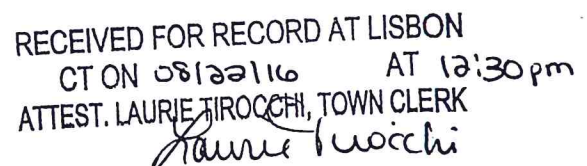 RECEIVED FOR RECORD AT LISBON
CT ON 08/22/16 AT 12:30pm
ATTEST. LAURIE TIROCCHI, TOWN CLERK
Laurie Tirocchi